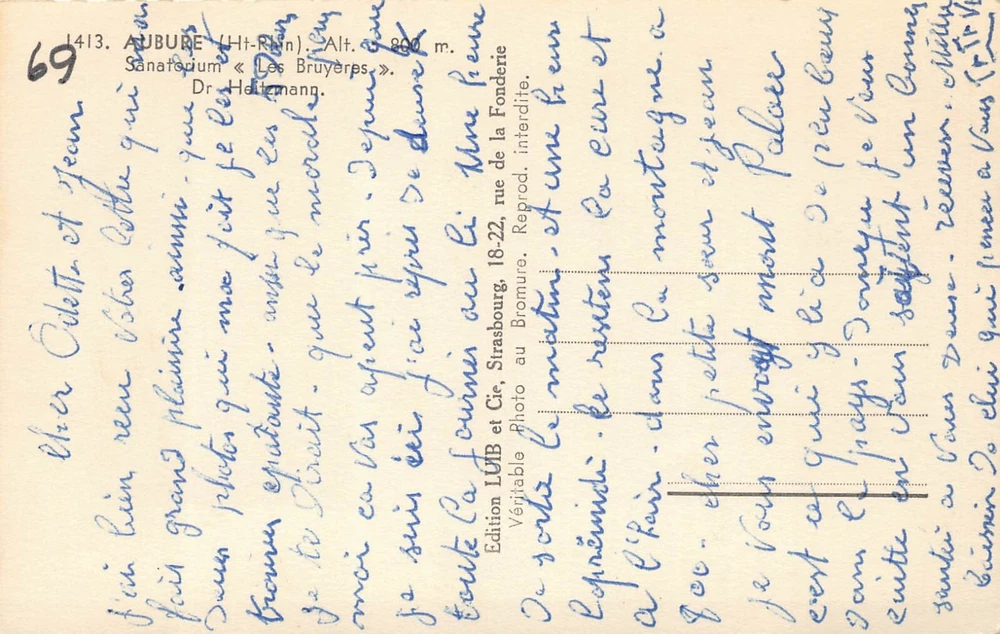 69
1413. AUBURE (Ht-Rhin). Alt. 800 m.
Sanatorium « Les Bruyères ».
Dr Heitzmann.
Edition LUIB et Cie, Strasbourg, 18-22, rue de la Fonderie
Véritable Photo au Bromure. Reprod. interdite.
Cher Odette et Jean
J'ai bien reçu votre lettre qui m'a
fait grand plaisire aussi que les
deux photos qui ma fait je les
trouve epatante. ainsi que les
je te dirait que le morale
moi ca vas apeut près. Depui que
je suis ici j'ai repris De
toute la journes au li Une heure
De sortie le matin et une heure
l'aprémidi. le restem la cure et
a l'air dans la montagne a
800. cher petite sœur et Jean
je vous envoyt mont Palace
c'est ce qui y li a De plu beau
Dans le pays. Donque je vous
quitte en vous un bonne
santée a vous Deuse. recever Mille
baissée De chui qui pense a vous